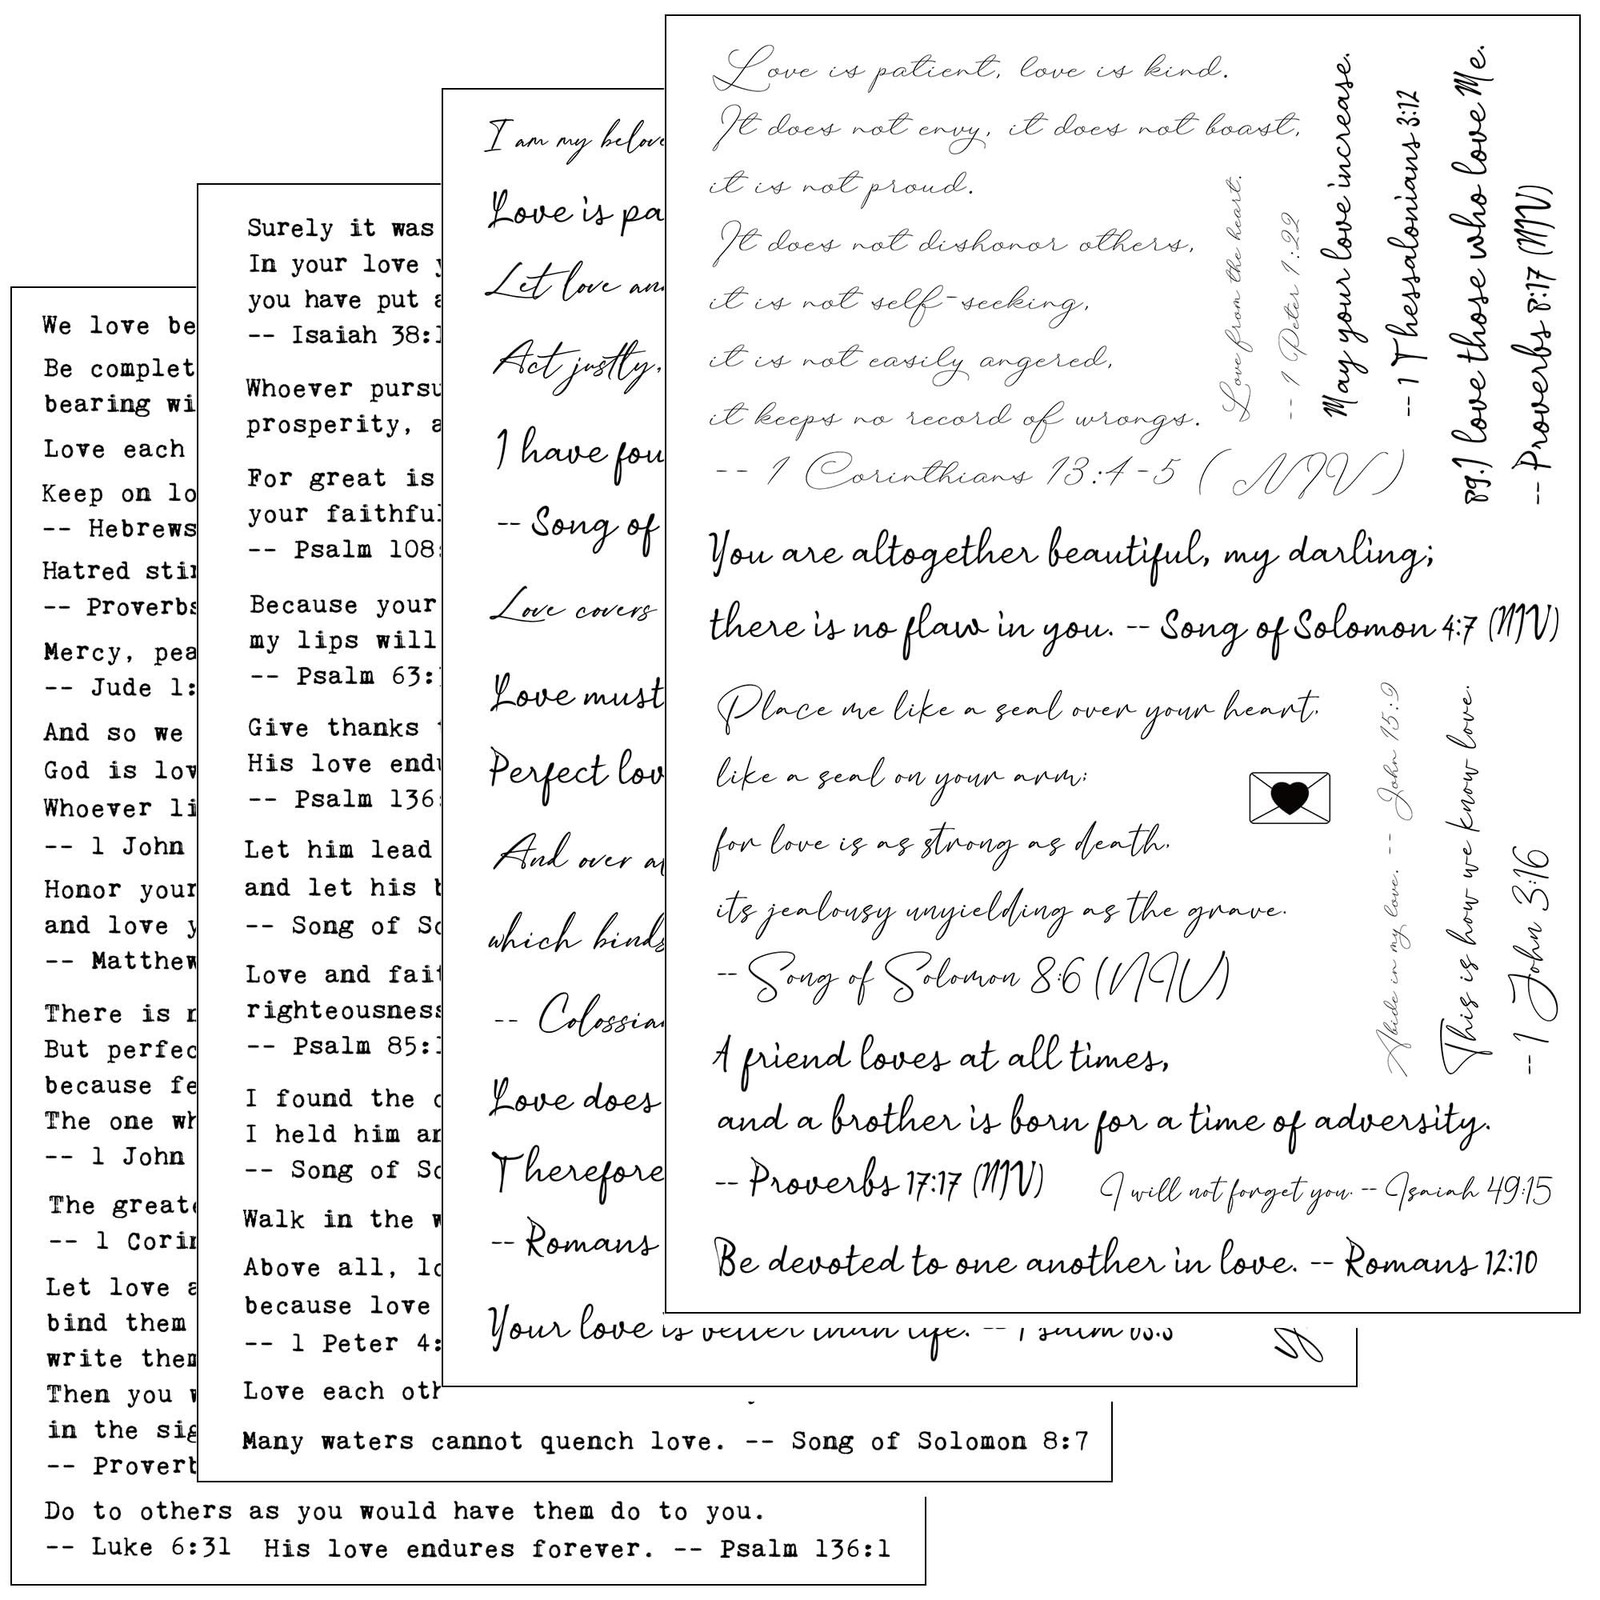 We love be
Be complet
bearing wi
Love each
Keep on lo
-- Hebrews
Hatred stir
-- Proverbs
Mercy, pea
-- Jude 1:
And so we
God is lov
Whoever li
-- 1 John
Honor your
and love y
-- Matthew
There is n
But perfec
because fe
The one wh
-- 1 John
The greate
-- 1 Corin
Let love a
bind them
write them
Then you w
in the sig
-- Proverb
Do to others as you would have them do to you.
-- Luke 6:31 His love endures forever. -- Psalm 136:1
Surely it was
In your love y
you have put a
-- Isaiah 38:1
Whoever pursu
prosperity, a
For great is
your faithful
-- Psalm 108:
Because your
my lips will
-- Psalm 63:
Give thanks t
His love endu
-- Psalm 136:
Let him lead
and let his b
-- Song of So
Love and fait
righteousness
-- Psalm 85:1
I found the o
I held him an
-- Song of So
Walk in the w
Above all, lo
because love
-- 1 Peter 4:
Love each oth
Many waters cannot quench love. -- Song of Solomon 8:7
I am my belove
Love is pa
Let love an
Act justly,
I have fou
-- Song of
Love covers
Love must
Perfect lov
And over al
which binds
-- Colossian
Love does
Therefore
-- Romans
Your love is better than life. -- Psalm 63:3
Love is patient, love is kind.
It does not envy, it does not boast,
it is not proud.
It does not dishonor others,
it is not self-seeking,
it is not easily angered,
it keeps no record of wrongs.
-- 1 Corinthians 13:4-5 (NIV)
Love from the heart.
-- 1 Peter 1:22
May your love increase.
-- 1 Thessalonians 3:12
89.I love those who love Me.
-- Proverbs 8:17 (NIV)
You are altogether beautiful, my darling;
there is no flaw in you. -- Song of Solomon 4:7 (NIV)
Place me like a seal over your heart,
like a seal on your arm;
for love is as strong as death,
its jealousy unyielding as the grave.
-- Song of Solomon 8:6 (NIV)
Abide in my love. -- John 15:9
This is how we know love.
-- 1 John 3:16
A friend loves at all times,
and a brother is born for a time of adversity.
-- Proverbs 17:17 (NIV) I will not forget you. -- Isaiah 49:15
Be devoted to one another in love. -- Romans 12:10